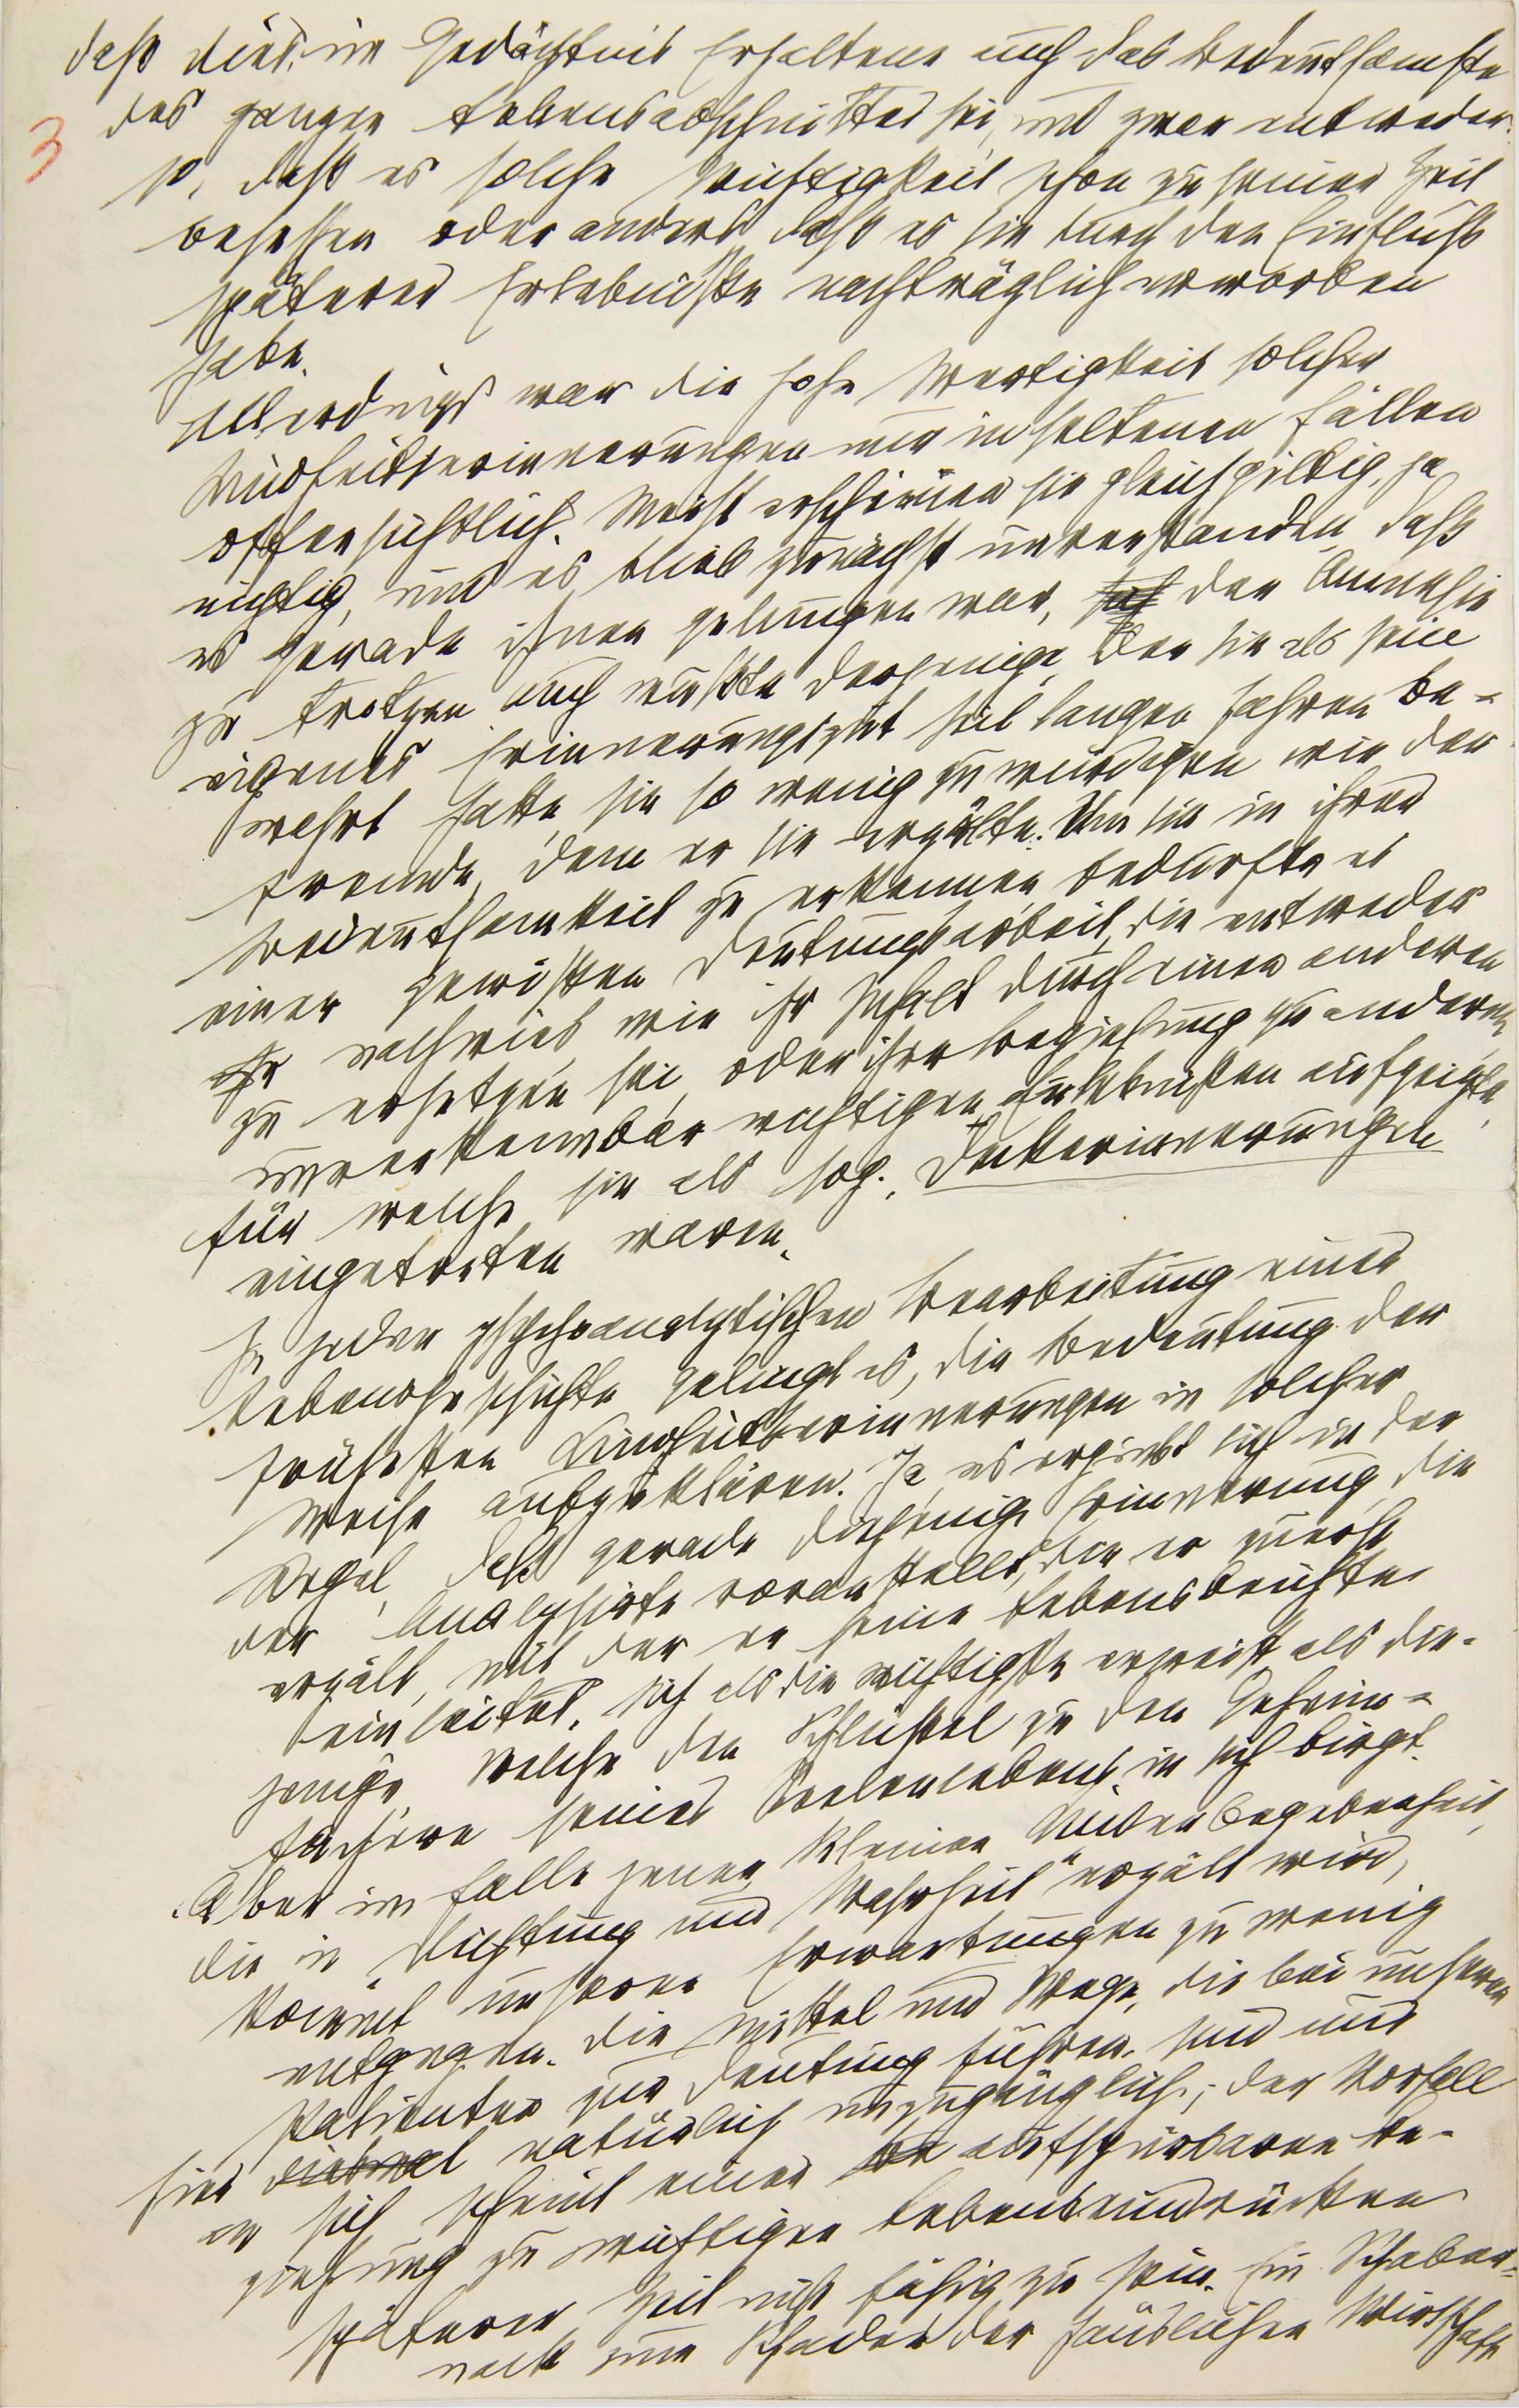 daß dies im Gedächtnis Erhaltene auch das Bedeutsamste
des ganzen Lebensabschnittes sei, und zwar entweder
3
so, daß es solche Wichtigkeit schon zu seiner Zeit
besessen oder anders, daß es sie durch den Einfluß
späterer Erlebnisse nachträglich erworben
habe.
Allerdings war die hohe Wertigkeit solcher
Kindheitserinnerungen nur in seltenen Fällen
offensichtlich. Meist erschienen sie gleichgiltig, ja
nichtig, und es blieb zunächst unverstanden, daß
es gerade ihnen gelungen war, der Amnesie
zu trotzen auch wußte derjenige, der sie als sein
eigenes Erinnerungsgut seit langen Jahren be-
wahrt hatte, sie so wenig zu würdigen wie der
Fremde, dem er sie erzälte. Um sie in ihrer
Bedeutsamkeit zu erkennen, bedurfte es
einer gewissen Deutungsarbeit, die entweder
nachwies, wie ihr Inhalt durch einen anderen
zu ersetzen sei, oder ihre Beziehung zu anderen,
unverkennbar wichtigen Erlebnissen aufzeigte,
für welche sie als sog. Deckerinnerungen
eingetreten waren.
In jeder psychoanalytischen Bearbeitung einer
Lebensgeschichte gelingt es, die Bedeutung der
frühesten Kindheitserinnerungen in solcher
Weise aufzuklären. Ja, es ergiebt sich in der
Regel, daß gerade diejenige Erinnerung, die
der Analysirte voranstellt, die er zuerst
erzält, mit der er seine Lebensbeichte
einleitet, sich als die wichtigste erweist als die-
jenige, welche die Schlüssel zu den Geheim-
fächern seines Seelenlebens in sich birgt.
Aber im Falle jener kleinen Kinderbegebenheit,
die in „Dichtung und Wahrheit“ erzält wird,
kommt unseren Erwartungen zu wenig
entgegen. Die Mittel und Wege, die bei unseren
Patienten zur Deutung führen, sind uns
hier diesmal natürlich unzugänglich; der Vorfall
an sich scheint einer aufspürbaren Be-
ziehung zu wichtigen Lebenseindrücken
späterer Zeit nicht fähig zu sein. Ein Schaber-
nack zum Schaden der häuslichen Wirtschaft